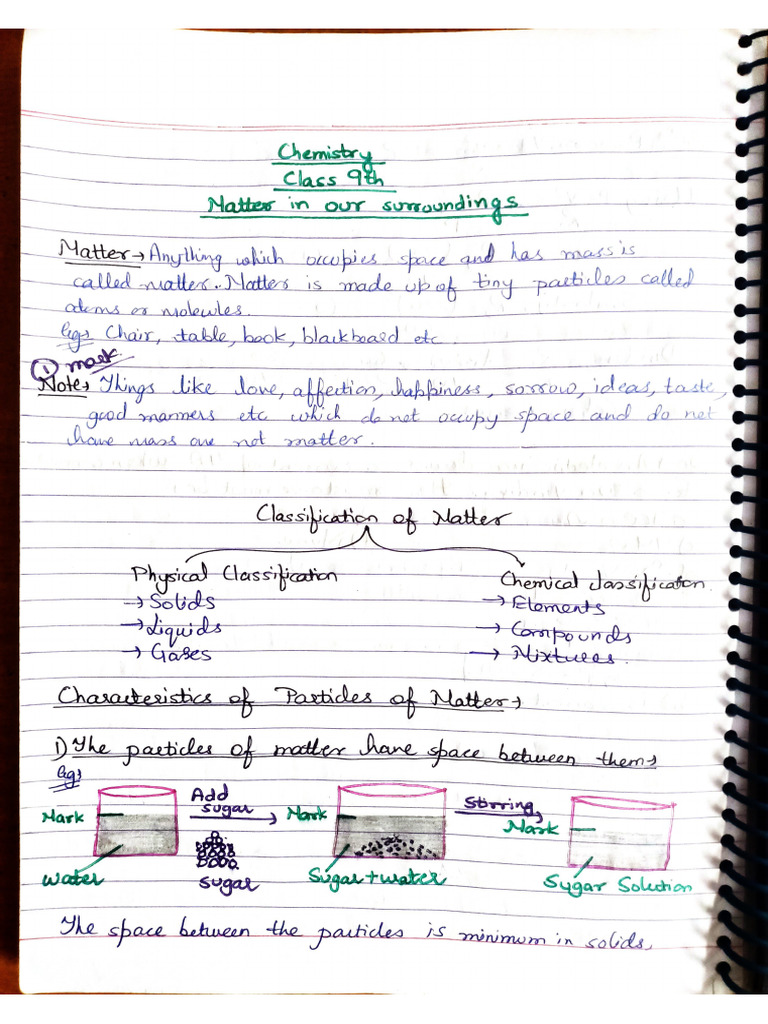 Chemistry
Class 9th
Matter in our surroundings
Matter → Anything which occupies space and has mass is
called matter. Matter is made up of tiny particles called
atoms or molecules.
Eg: Chair, table, book, blackboard etc.
① mark
Note → Things like love, affection, happiness, sorrow, ideas, taste,
good manners etc which do not occupy space and do not
have mass are not matter.
Classification of Matter
Physical Classification
→ Solids
→ Liquids
→ Gases
Chemical classification
→ Elements
→ Compounds
→ Mixtures.
Characteristics of Particles of Matter →
1) The particles of matter have space between them →
Eg:
Mark
water
Add
sugar
sugar
Mark
Sugar+water
Stirring
Mark
Sugar Solution
The space between the particles is minimum in solids,